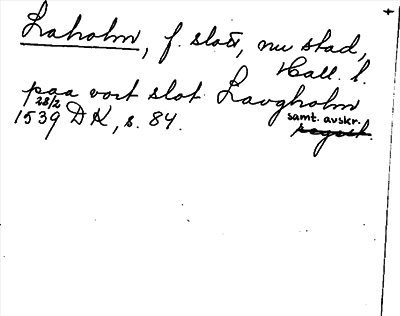 Laholm, f. slott, nu stad,
Hall. l.
paa vort slot Lavgholm
28/2
1539 DK, s. 84.
samt. avskr.
regest.